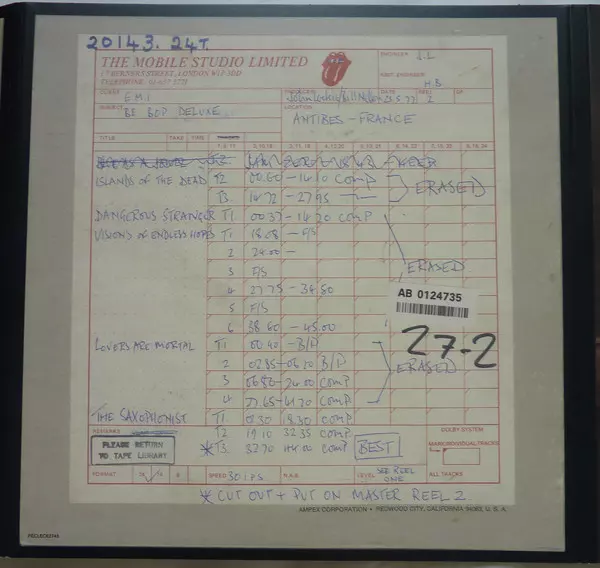 20143. 24T.
THE MOBILE STUDIO LIMITED
17 BERNERS STREET, LONDON W1P 3DD
TELEPHONE
ENGINEER J.L
ASST. ENGINEER H.B
CLIENT EMI
SUBJECT BE BOP DELUXE
PRODUCER John Leckie/Bill Nelson
REEL 2 OF
LOCATION
ANTIBES - FRANCE
TITLE TAKE TIME
ISLANDS OF THE DEAD T2 00.60 - 14.10 COMP
T3 14.72 - 27.95
ERASED
DANGEROUS STRANGER T1 00.37 - 14.20 COMP
VISIONS OF ENDLESS HOPES T1 18.08 - F/S
2 24.00 -
3 F/S
ERASED
4 27.75 - 34.80
AB 0124735
5 F/S
6 38.60 - 45.00
27-2
LOVERS ARE MORTAL T1 00.40 - B/D
2 02.85 - 06.50 B/D
ERASED
3 06.80 - 24.00 COMP
4 27.65 - 41.70 COMP
THE SAXOPHONIST T1 0.30 18.30 COMP
REMARKS
T2 19.10 32.35 COMP
DOLBY SYSTEM
PLEASE RETURN
TO TAPE LIBRARY
* T3 COMP BEST
MAIN/INDIVIDUAL TRACKS
FORMAT
SPEED 30 IPS
N.A.B.
LEVEL SEE REEL ONE
ALL TRACKS
* CUT OUT + PUT ON MASTER REEL 2
AMPEX CORPORATION • REDWOOD CITY, CALIFORNIA 94063, U. S. A.